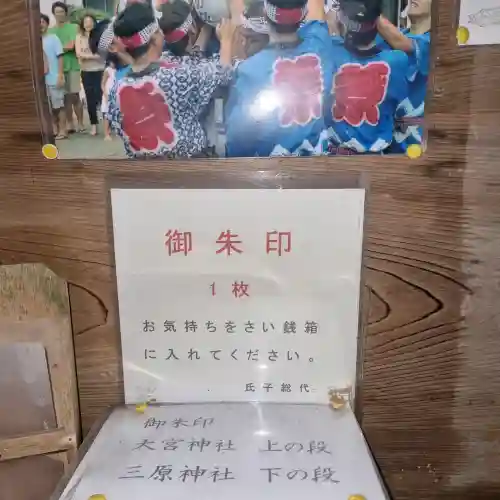 祭
祭
祭
御朱印
1枚
お気持ちをさい銭箱
に入れてください。
氏子総代
御朱印
大宮神社 上の段
三原神社 下の段